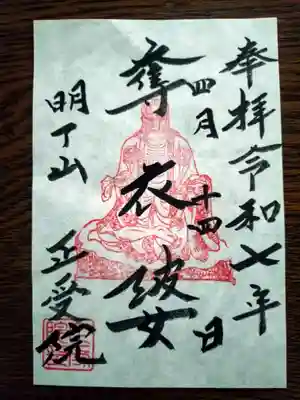 奉拝令和七年
四月十四日
奪衣婆
明了山
正受院